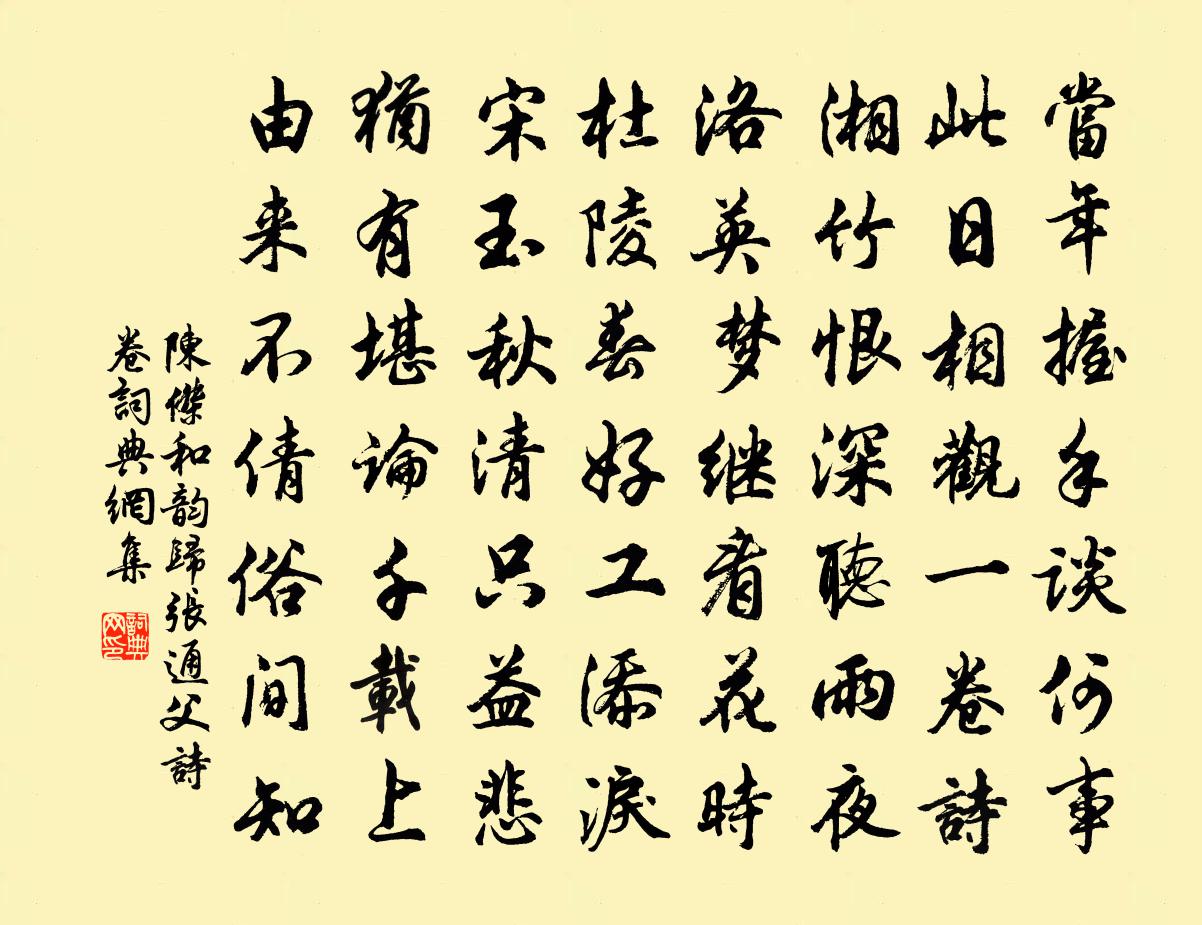 當年握手談何事
此日相觀一卷詩
湘竹恨深聽雨夜
洛英梦継看花時
杜陵春好工添淚
宋玉秋清只益悲
猶有堪論千載上
由来不倩俗間知
陳傑和韵歸張通父詩
卷詞典網集
詞典
网印